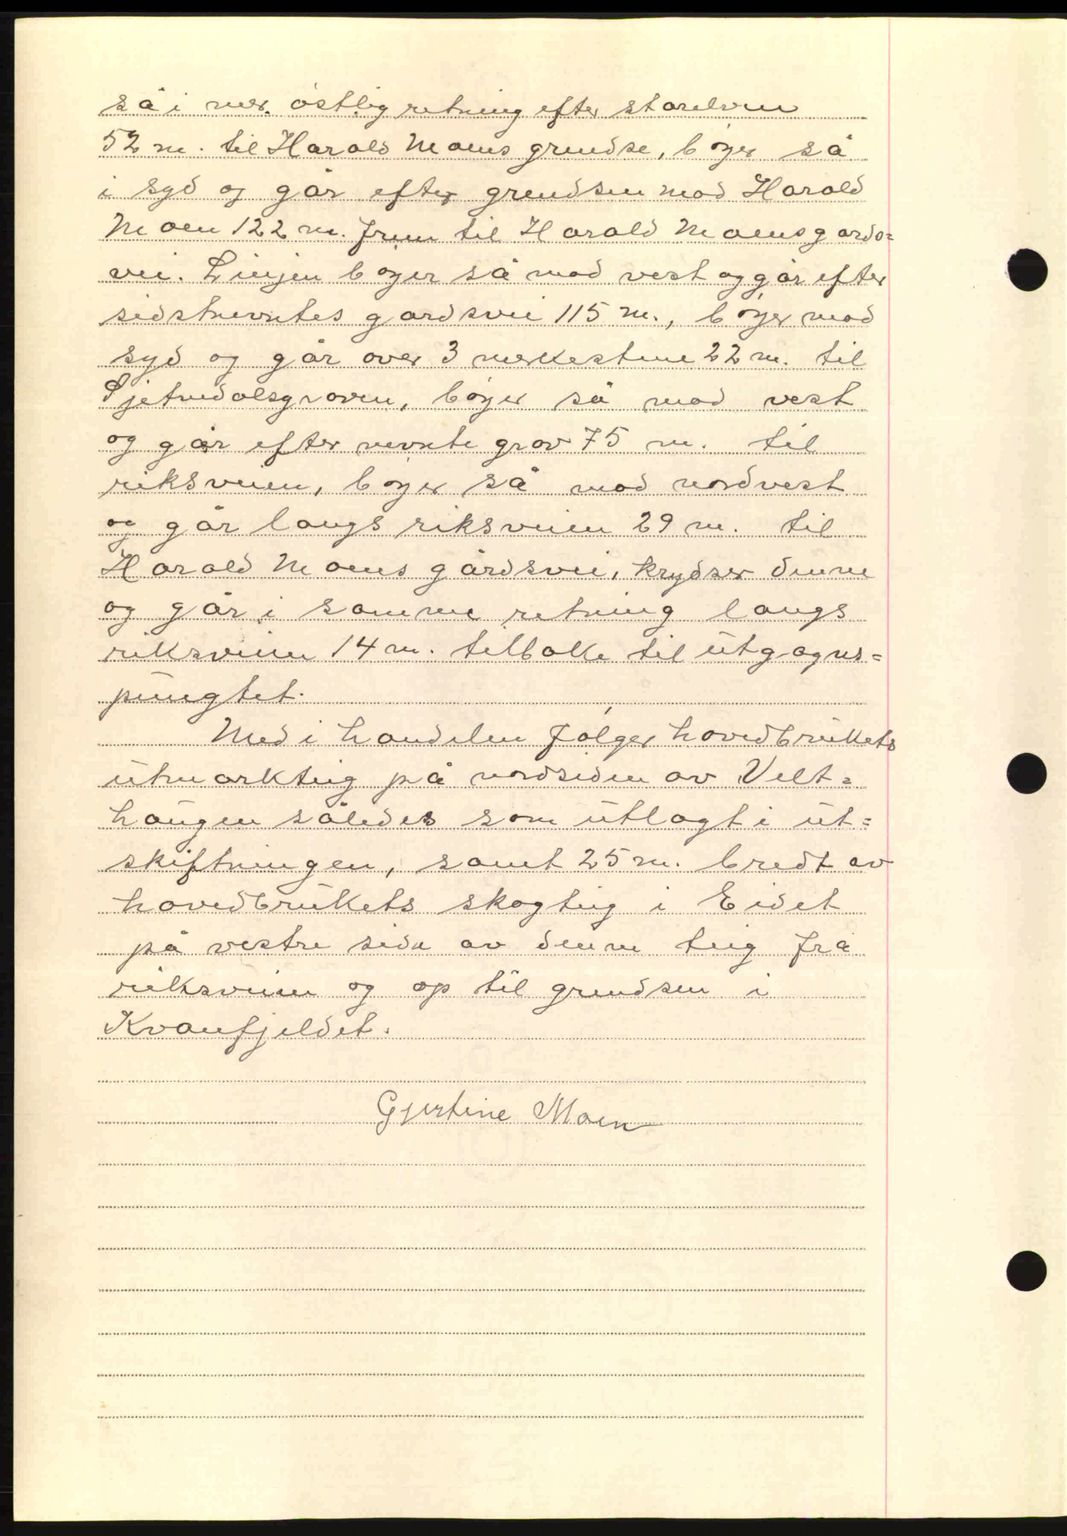 så i mer østlig retning efter storelven
52 m. til Harald Moens grendse, bøyer så
i syd og går efter grendsen mod Harald
Moen 122 m. frem til Harald Moens gards=
vei. Linjen bøyer så mod vest og går efter
sidstnevntes gardsvei 115 m., bøyer mod
syd og går over 3 merkestene 22 m. til
Ljetnedalsgroven, bøyer så mod vest
og går efter nevnte grov 75 m. til
riksveien, bøyer så mod nordvest
og går langs riksveien 29 m. til
Harald Moens gårdsvei, krydser denne
og går i samme retning langs
riksveien 14 m. tilbake til utgagns=
pungtet.
Med i handelen følger hovedbrukets
utmarkteig på nordsiden av Velt=
haugen således som utlagt i ut=
skiftningen, samt 25 m. bredt av
hovedbrukets skogteig i Eidet
på vestre side av denne teig fra
riksveien og op til grendsen i
Kvanfjeldet.
Gjertine Moen